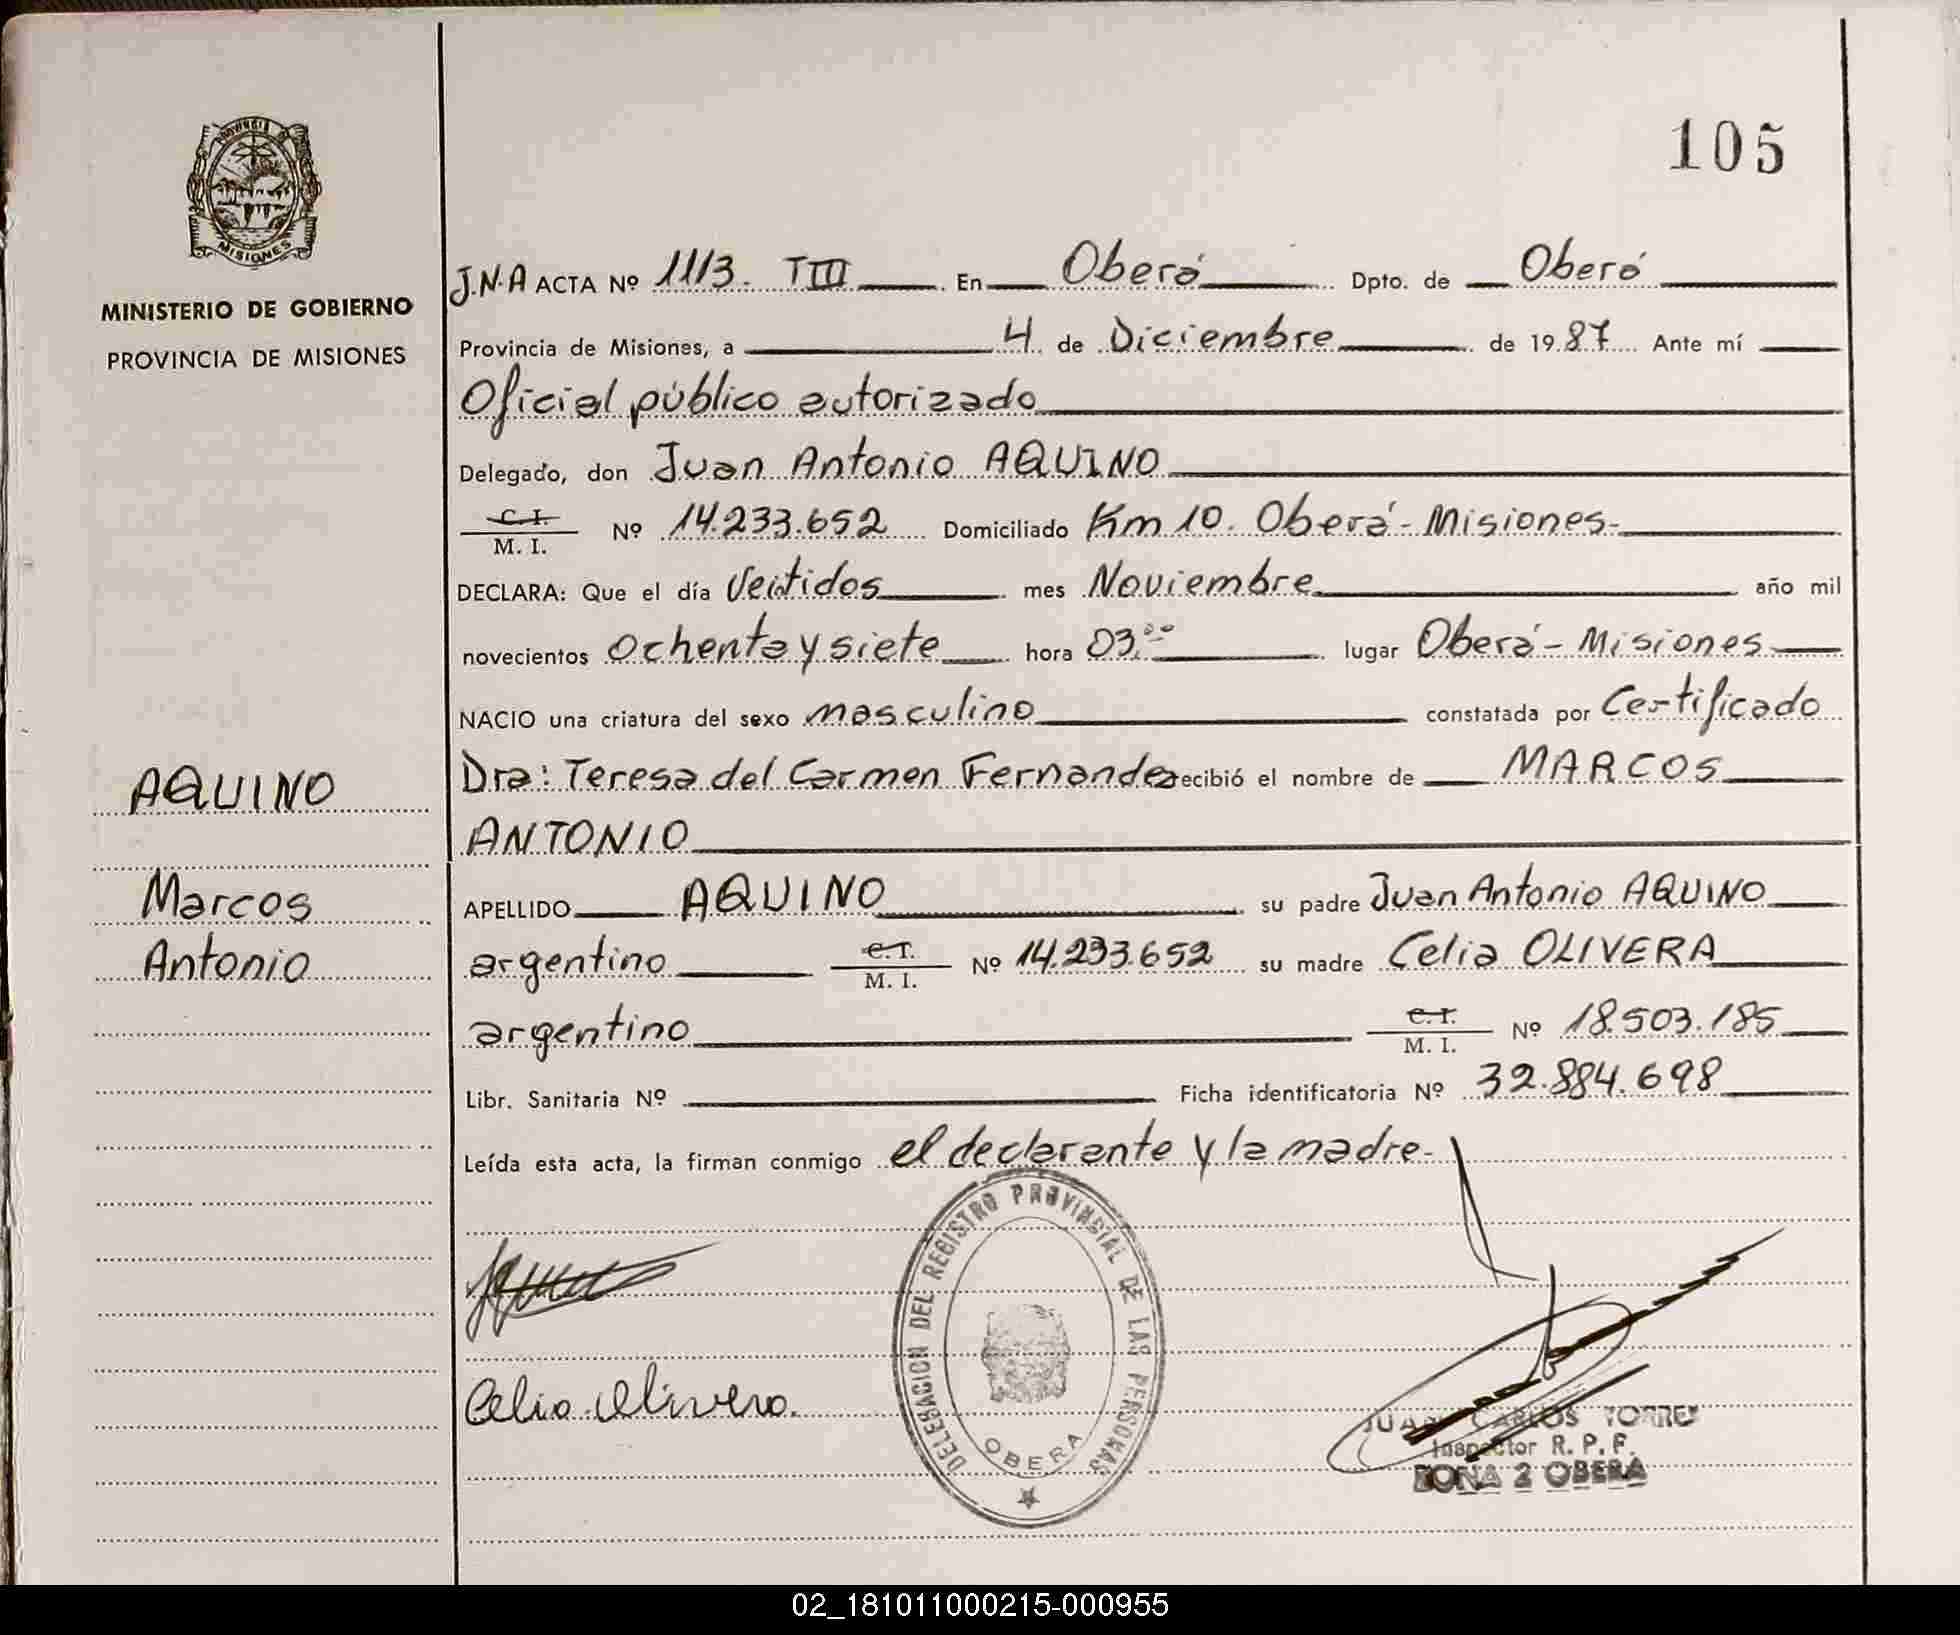 105
PROVINCIA DE
MISIONES
MINISTERIO DE GOBIERNO
PROVINCIA DE MISIONES
AQUINO
Marcos
Antonio
J.N.A ACTA Nº 1113. TIII En Oberá Dpto. de Oberá
Provincia de Misiones, a 4 de Diciembre de 1987 Ante mí
Oficial público autorizado
Delegado, don Juan Antonio AQUINO
C. I. M. I. Nº 14.233.652 Domiciliado Km 10. Oberá - Misiones-
DECLARA: Que el día Veitidos mes Noviembre año mil
novecientos ochenta y siete hora 03:00 lugar Oberá - Misiones
NACIO una criatura del sexo masculino constatada por Certificado
Dra: Teresa del Carmen Fernandez recibió el nombre de MARCOS
ANTONIO
APELLIDO AQUINO su padre Juan Antonio AQUINO
argentino C. I. M. I. Nº 14.233.652 su madre Celia OLIVERA
argentino C. I. M. I. Nº 18.503.185
Libr. Sanitaria Nº Ficha identificatoria Nº 32.884.698
Leída esta acta, la firman conmigo el declarante y la madre.-
DELEGACION DEL REGISTRO PROVINCIAL DE LAS PERSONAS
OBERA
Celia Olivera.
JUAN CARLOS TORRES
Inspector R. P. P.
ZONA 2 OBERA
02_181011000215-000955